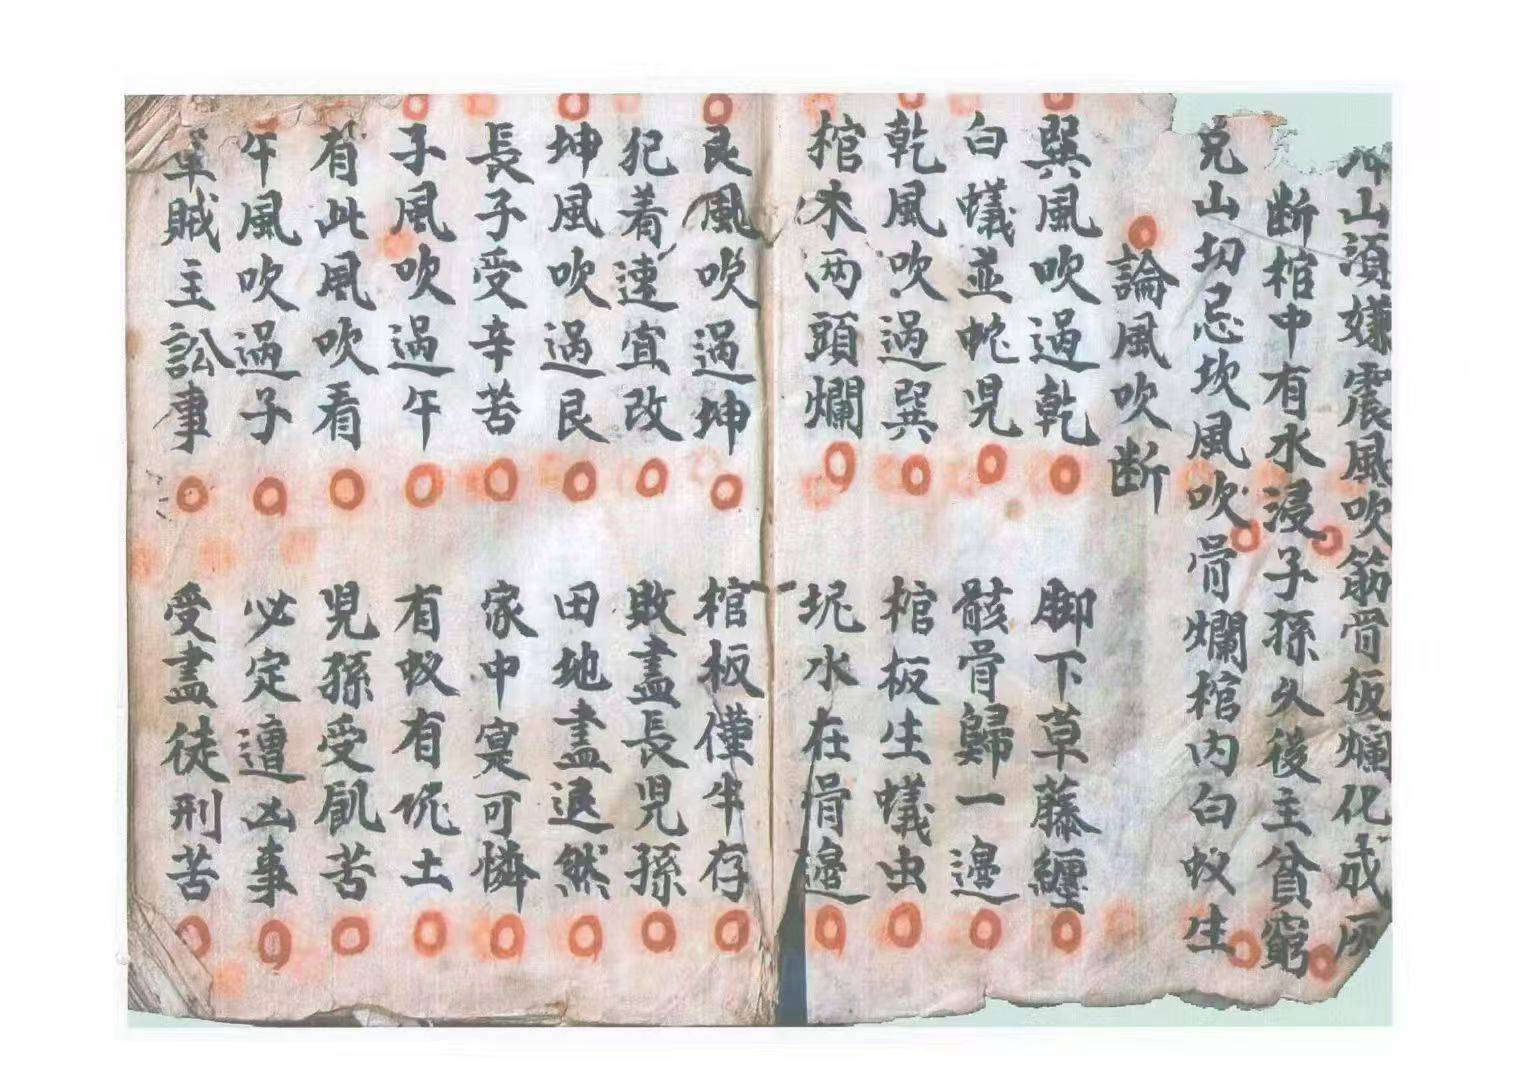 山須嫌震風吹筋骨板爛化成灰
断棺中有水浸子孫久後主貧窮
兌山切忌坎風吹骨爛棺内白蚁生
論風吹断
巽風吹過乾 脚下草藤纏
白蟻並蛇児 骸骨歸一邊
乾風吹過巽 棺板生蟻虫
棺木两頭爛 坭水在骨邊
艮風吹過坤 棺板僅半存
犯着速宜改 敗盡長児孫
坤風吹過艮 田地盡退然
長子受辛苦 家中寔可憐
子風吹過午 有蚁有坭土
有此風吹看 児孫受飢苦
午風吹過子 必定遭凶事
賊主訟事 受盡徒刑苦